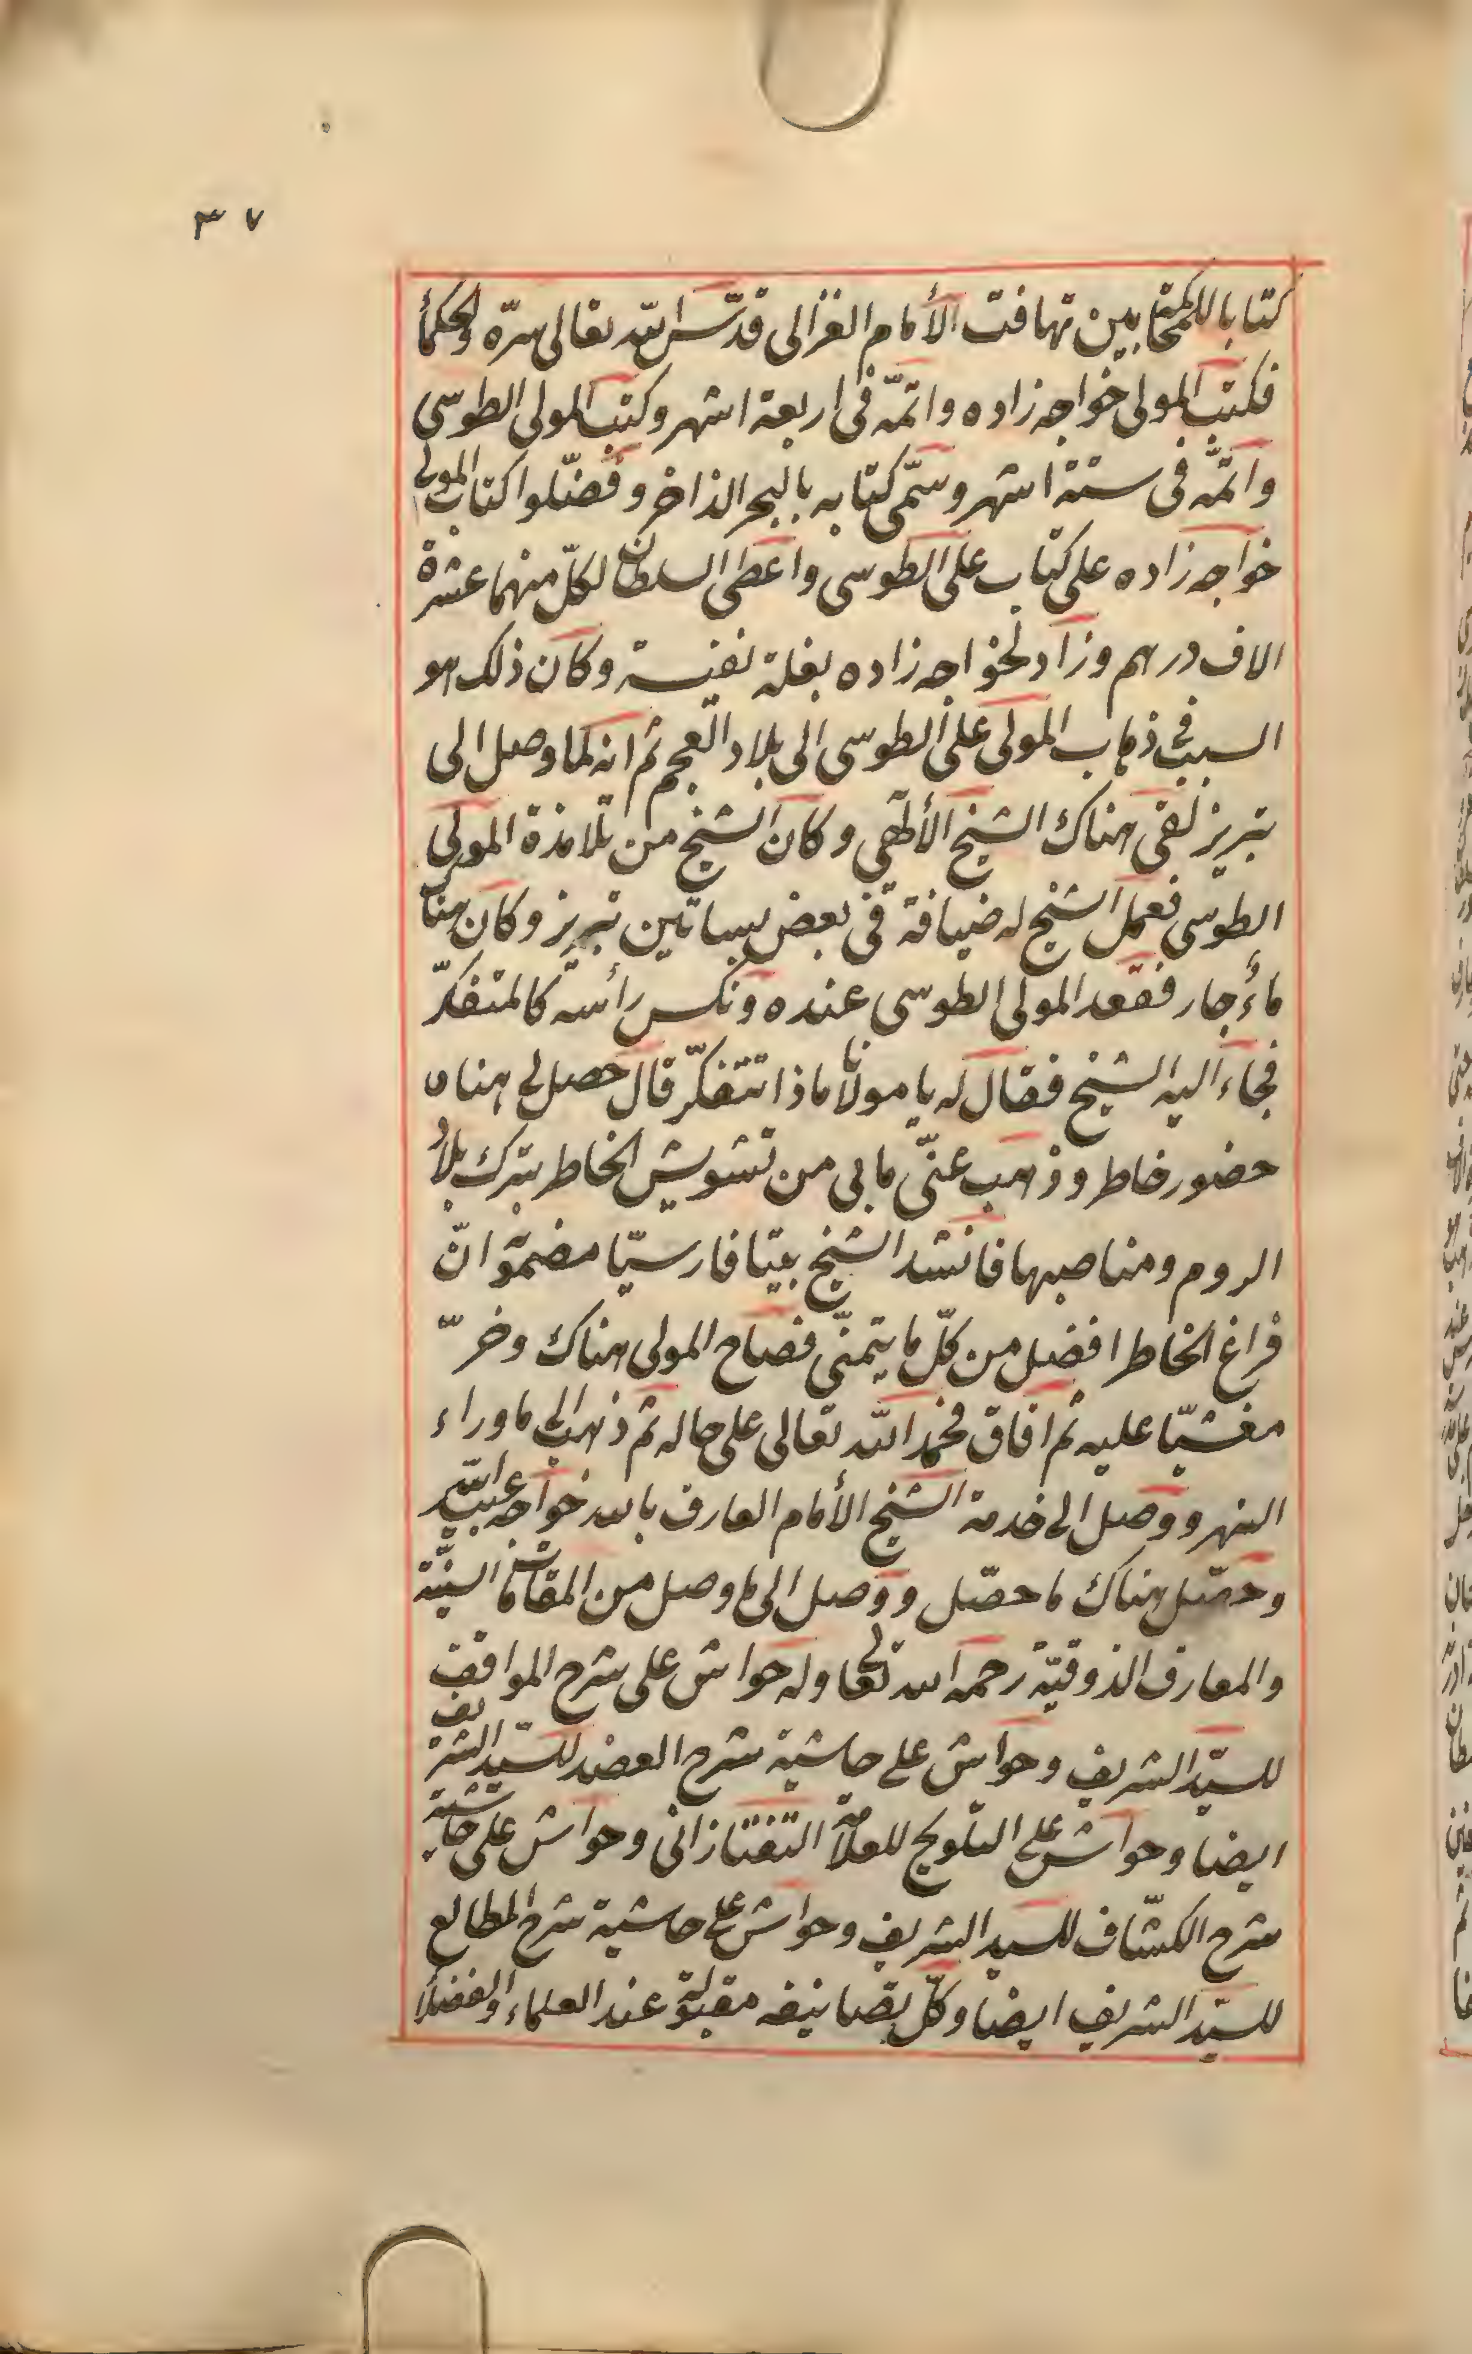 ٣٧
كتابا للمحاكمة بين تهافت الأمام الغزالى قدّس اللّه تعالى سرّه والحكمأ
فكتب المولى خواجه زاده واتمّه فى اربعة اشهر وكتب المولى الطوسى
واتمّه فى ستة اشهر وسمّى كتابه بالبحر الذاخر وفضّلوا كتاب المولى
خواجه زاده على كتاب على الطوسى واعطى السلطان لكلّ منهما عشرة
الاف درهم وزاد لخواجه زاده بغلة نفيسة وكان ذلك هو
السبب فى ذهاب المولى على الطوسى الى بلاد العجم ثم انه لما وصل الى
تبريز لقى هناك الشيخ الألٓهى وكان الشيخ من تلامذة المولى
الطوسى فعمل الشيخ له ضيافة فى بعض بساتين تبريز وكان هناك
ماءٌ جار فقعد المولى الطوسى عنده ونكس رأسه كالمتفكّر
فجاء اليه الشيخ فقال له يا مولانا ماذا تتفكّر قال حصل لى هناك
حضور خاطر وذهب عنّى مابى من تشويش الخاطر بترك بلاد
الروم ومناصبها فانشد الشيخ بيتا فارسيّا مضمونه انّ
فراغ الخاطر افضل من كلّ ما يتمنّى فصاح المولى هناك وخرّ
مغشيّا عليه ثم افاق فحمد اللّه تعالى على حاله ثم ذهب الى ماوراء
النهر ووصل الى خدمة الشيخ الأمام العارف بالله خواجه عبيد اللّه
وحصّل هناك ما حصّل ووصل الى ما وصل من المقامات السنيّة
والمعارف الذوقيّة رحمه الله تعالى وله حواش على شرح المواقف
للسيّد الشريف وحواش على حاشية شرح العضد للسيّد الشريف
ايضا وحواش على التلويح للعلامة التفتازانى وحواش على حاشية
شرح الكشّاف للسيد الشريف وحواش على حاشية شرح المطالع
للسيّد الشريف ايضا وكلّ تصانيفه مقبولة عند العلماء والفضلا